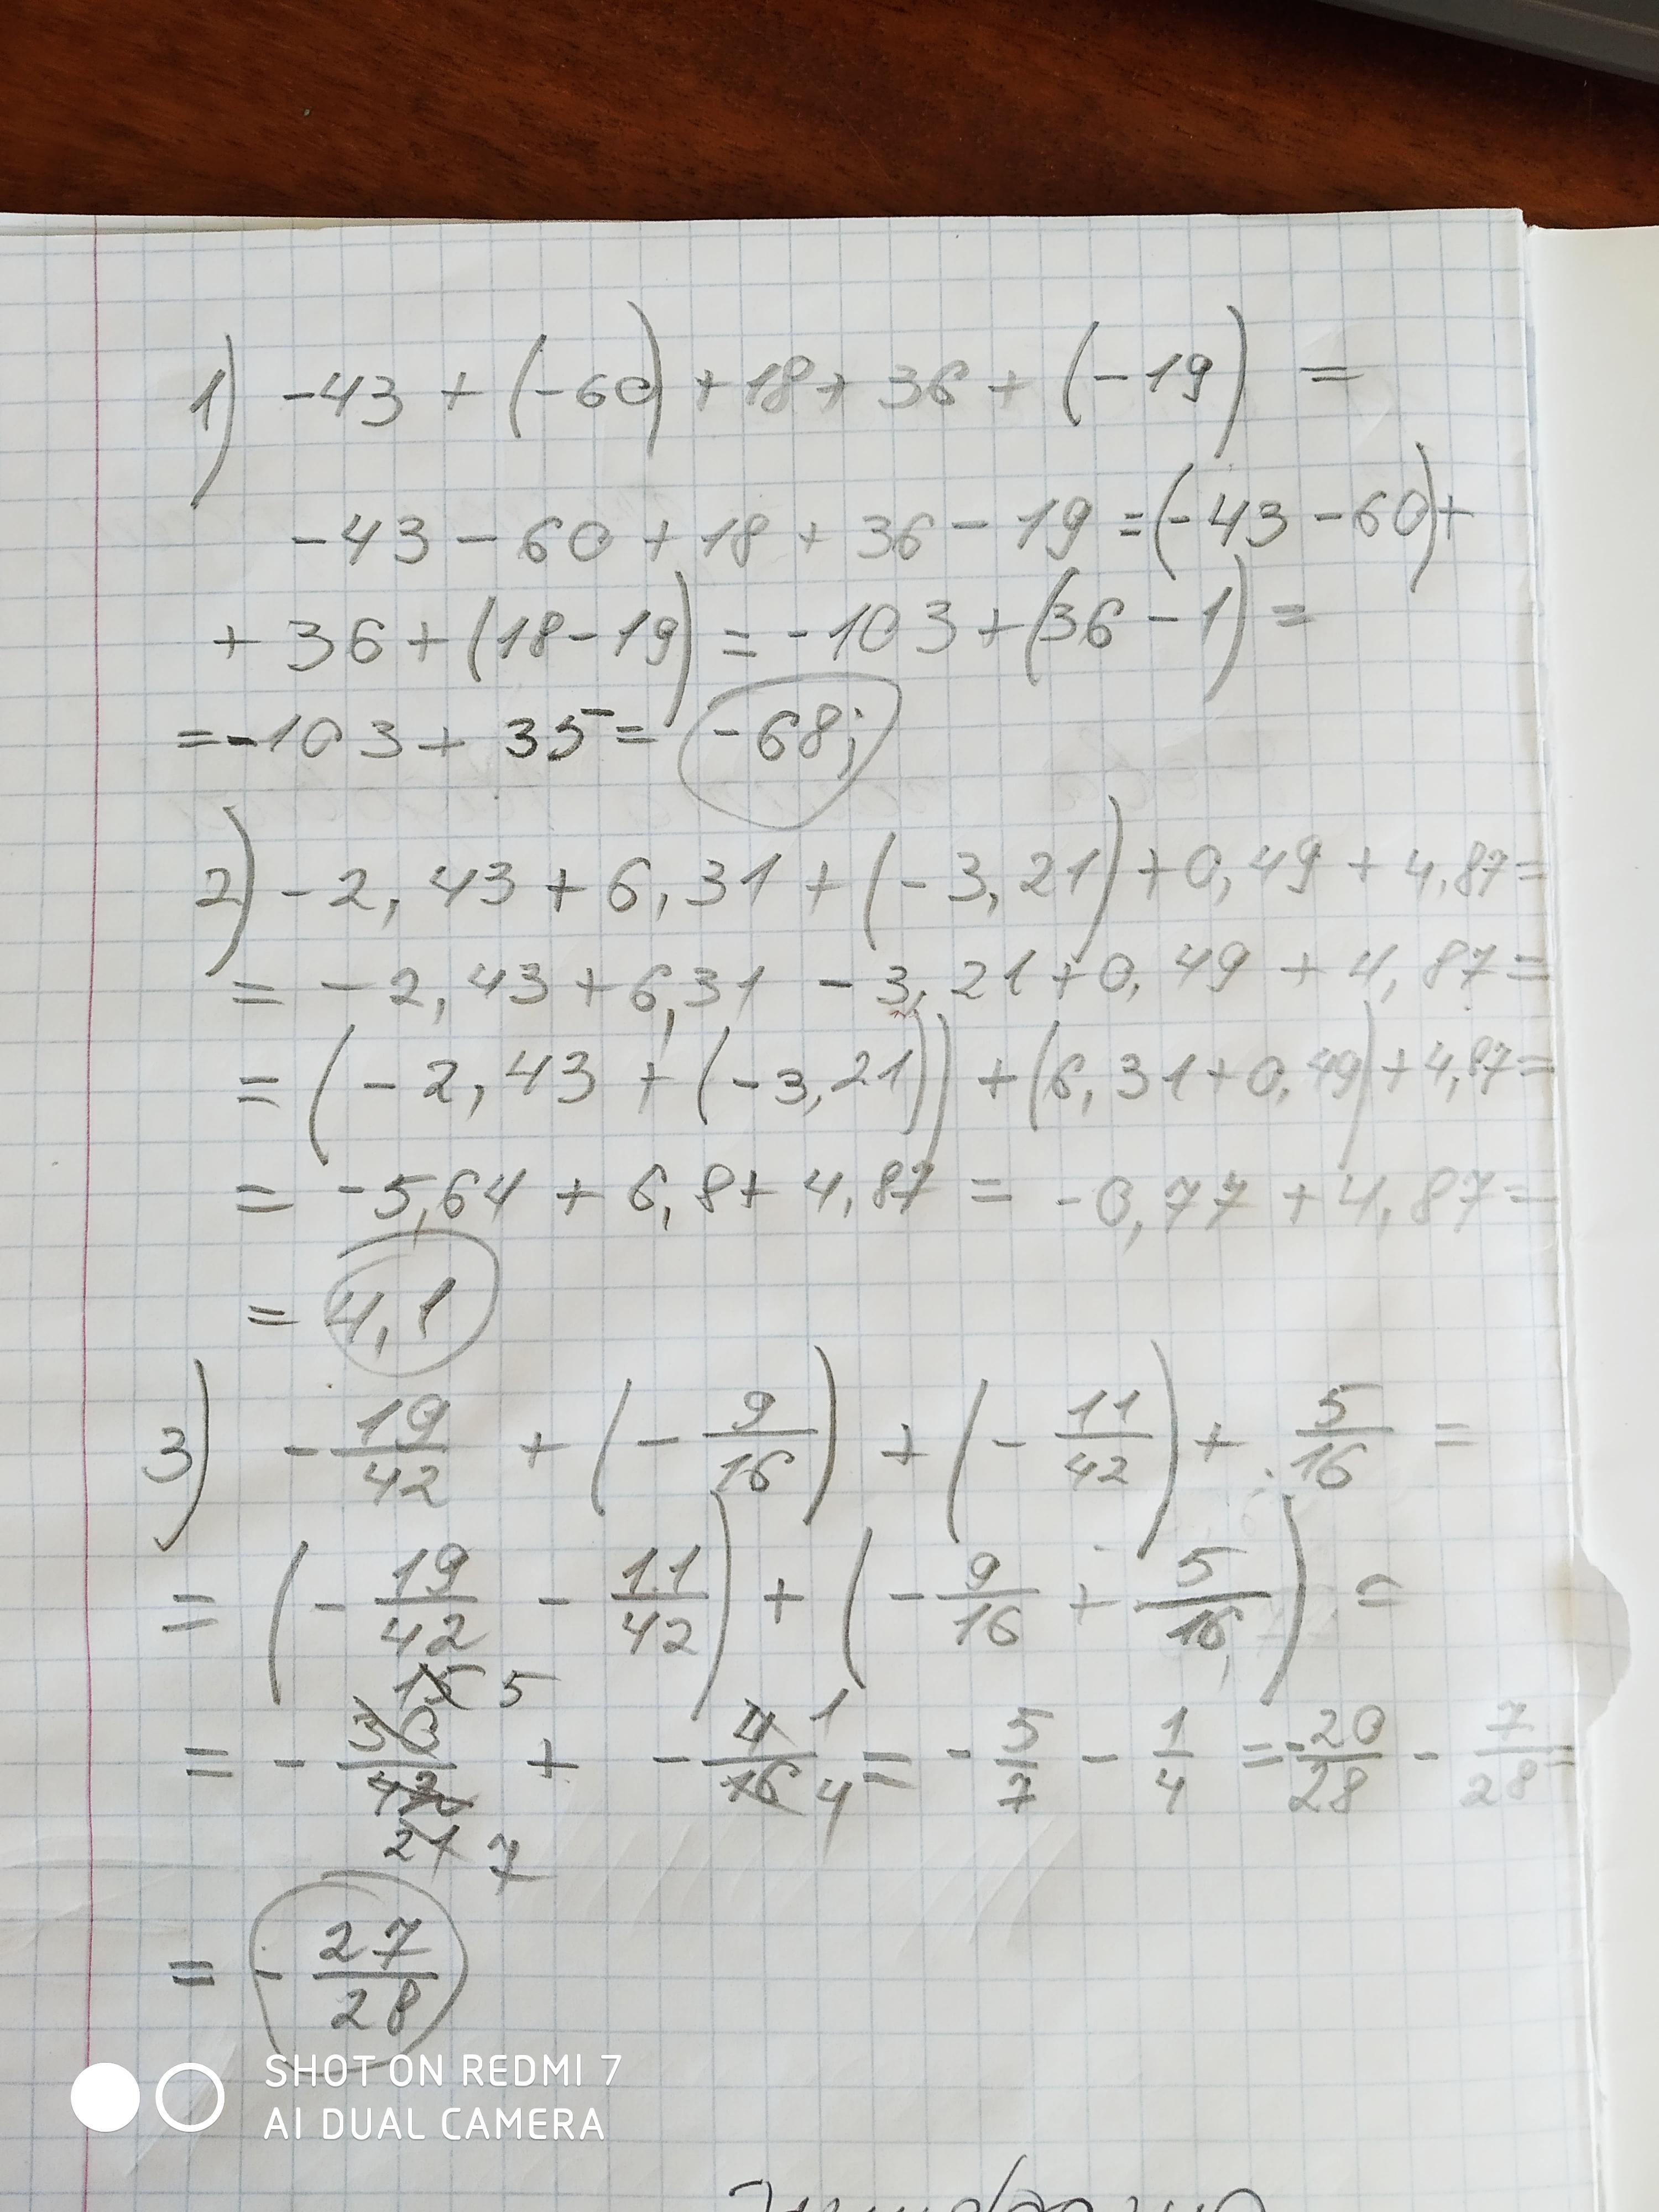 1) -43 + (-60) + 18 + 36 + (-19) =
-43 - 60 + 18 + 36 - 19 = (-43 - 60) +
+ 36 + (18 - 19) = -103 + (36 - 1) =
= -103 + 35 = -68;
2) -2,43 + 6,31 + (-3,21) + 0,49 + 4,87 =
= -2,43 + 6,31 - 3,21 + 0,49 + 4,87 =
= (-2,43 + (-3,21)) + (6,31 + 0,49) + 4,87 =
= -5,64 + 6,8 + 4,87 = -0,77 + 4,87 =
= 4,1
3) -19/42 + (-9/16) + (-11/42) + 5/16 =
= (-19/42 - 11/42) + (-9/16 + 5/16) =
15 5
= -30/42 + -4/16 1 4 = -5/7 - 1/4 = -20/28 - 7/28 =
21 7
= -27/28
SHOT ON REDMI 7
AI DUAL CAMERA